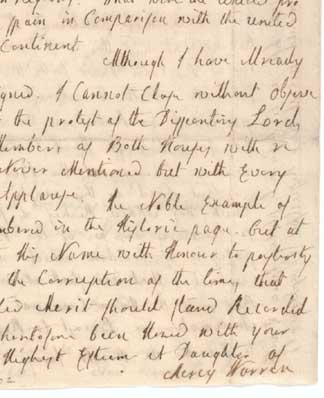 pain in Comparison with the united
Continent.
Although I have Already
igned. I Cannot Close without Observ
the protest of the Dissenting Lords
Members of Both Houses with re
Never Mentioned but with Every
Applause. The Noble Example of
mbered in the Historic page. but at
His Name with Honour to posterity
the Corruption of the times, that
ted Merit should stand Recorded
hentofore been Honed with your
Highest Esteem
Daughter of
Mercy Warren